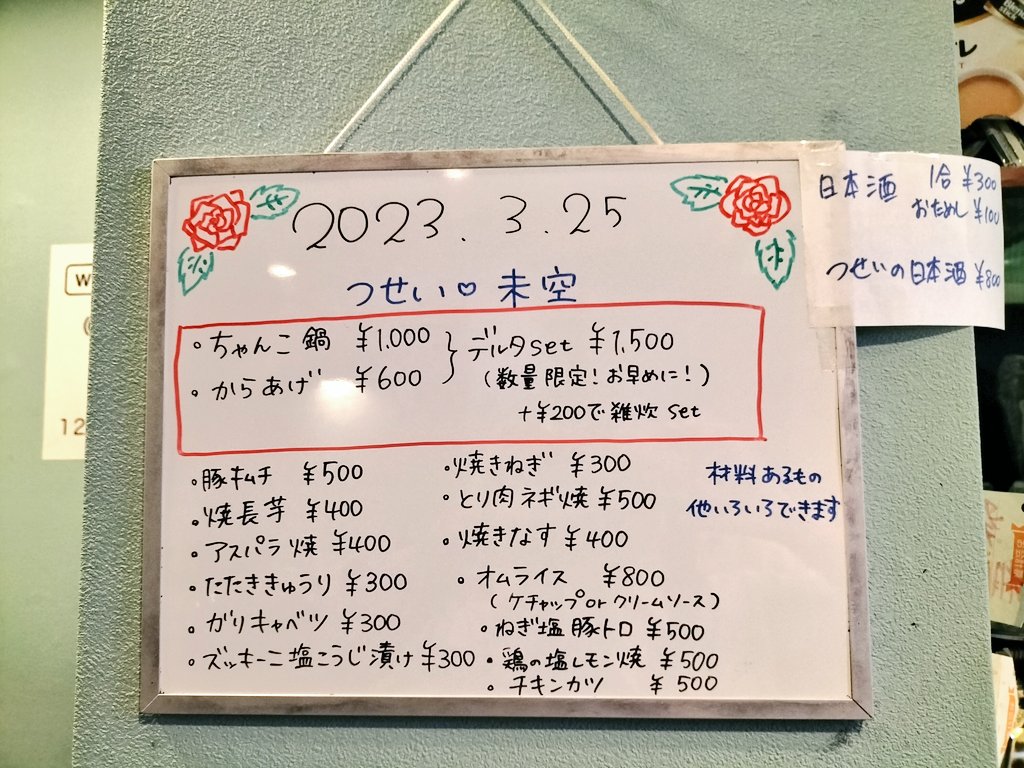 2023.3.25
つせい♡未空
・ちゃんこ鍋 ¥1.000
・からあげ ¥600
デルタset ¥1,500
(数量限定!お早めに!)
+¥200で雑炊set
・豚キムチ ¥500
・焼長芋 ¥400
・アスパラ焼 ¥400
・たたききゅうり ¥300
・ガリキャベツ ¥300
・ズッキーニ塩こうじ漬け ¥300
・焼きねぎ ¥300
・とり肉ネギ焼 ¥500
・焼きなす ¥400
・オムライス ¥800
(ケチャップorクリームソース)
・ねぎ塩豚トロ ¥500
・鶏の塩レモン焼 ¥500
・チキンカツ ¥500
材料あるもの
他いろいろできます
日本酒 1合 ¥300
おためし ¥100
つせいの日本酒 ¥800
W
12